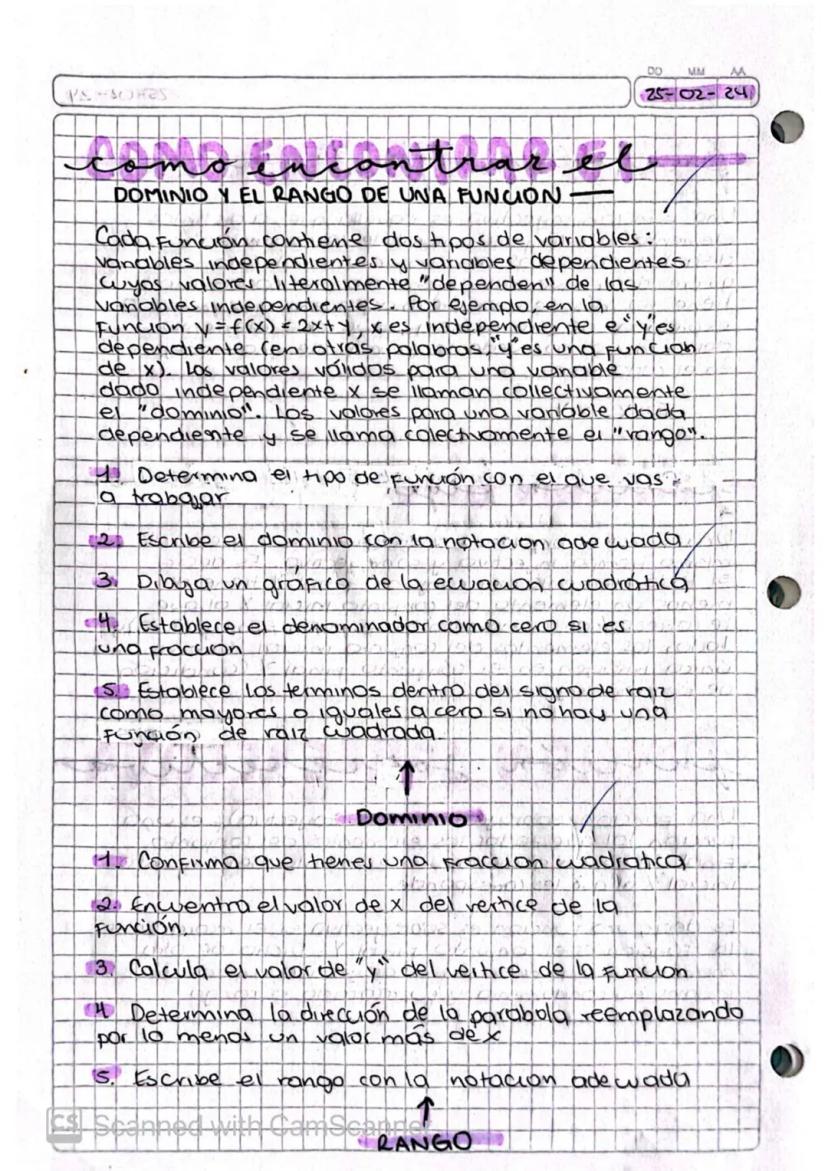 DD MM AA
25-02-24
como encontrar el
DOMINIO Y EL RANGO DE UNA FUNCION
Cada Función contiene dos tipos de variables:
variables independientes y variables dependientes
cuyos valores literalmente "dependen" de las
variables independientes. Por ejemplo, en la
Función y = f(x) = 2x+y, x es independiente e "y" es
dependiente (en otras palabras, "y" es una Función
de x). Los valores válidos para una variable
dado independiente x se llaman collectivamente
el "dominio". Los valores para una variable dada
dependiente y se llama colectivamente el "rango".
1. Determina el tipo de Función con el que vas
a trabajar
2. Escribe el dominio con la notacion adecuada
3. Dibuja un gráfico de la ecuacion cuadrática
4. Establece el denominador como cero si es
una fraccion
5. Establece los terminos dentro del signo de raiz
como mayores o iguales a cero si no hay una
Función de raiz cuadrada.
↑
Dominio
1. Confirma que tienes una Fraccion cuadratica
2. Encuentra el valor de x del vertice de la
Función.
3. Calcula el valor de "y" del vertice de la Funcion
4 Determina la dirección de la parabola reemplazando
por lo menos un valor más de x
5. Escribe el rango con la notacion adecuada
↑
RANGO
CS Scanned with CamScanner